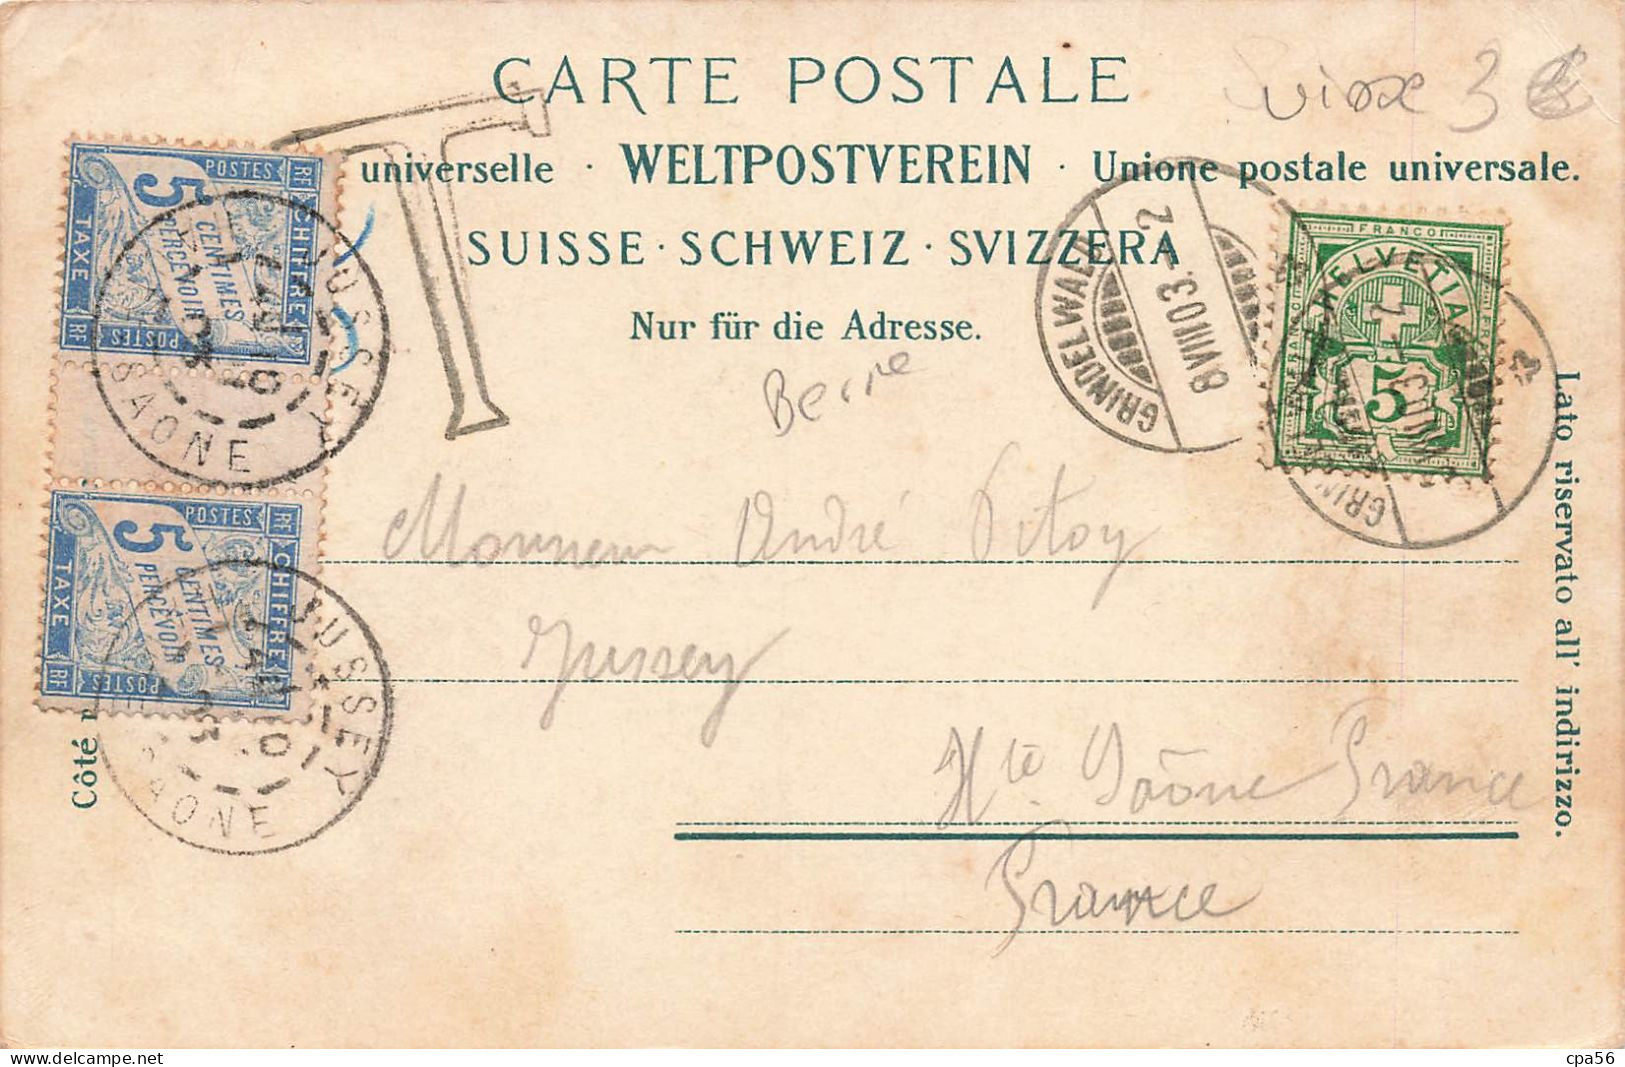 CARTE POSTALE
Suisse 3 €
universelle · WELTPOSTVEREIN · Unione postale universale.
SUISSE · SCHWEIZ · SVIZZERA
Nur für die Adresse.
T
Berne
GRINDELWALD
8 VIII 03. - 2
FRANCO
HELVETIA
5
GRIN
Monsieur André Pitoy
Jussey
Hte Saône France
France
Lato riservato all' indirizzo.
Côté
POSTES
RF
CHIFFRE
TAXE
5
CENTIMES
PERCEVOIR
POSTES
RF
JUSSEY
SAONE
POSTES
RF
CHIFFRE
TAXE
5
CENTIMES
PERCEVOIR
POSTES
RF
JUSSEY
SAONE
delcampe.net
cpa56